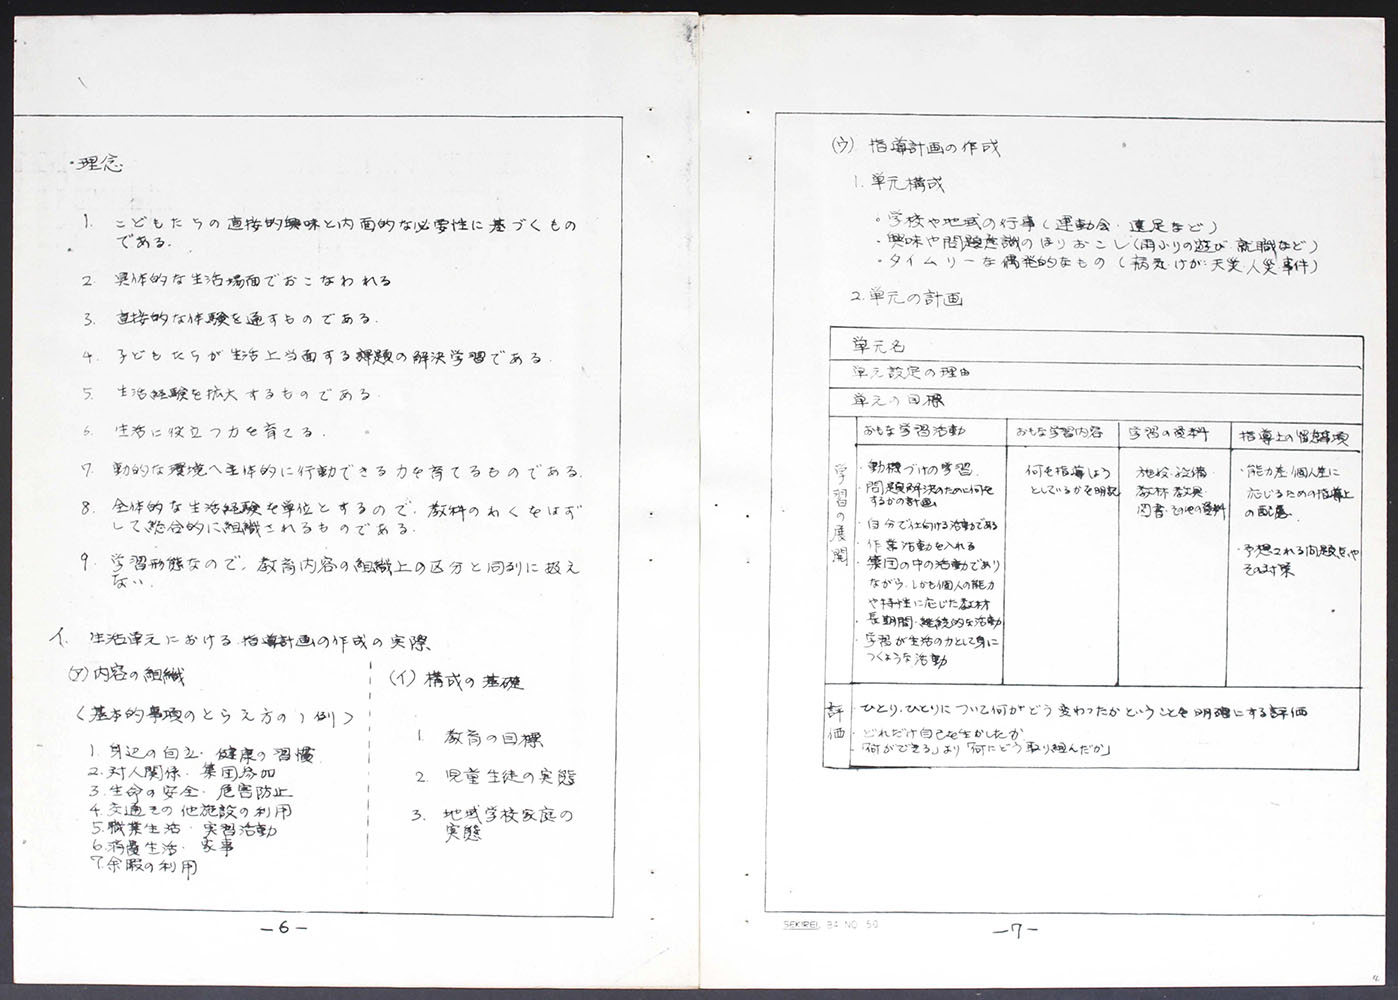 ・理念
1. こどもたちの直接的興味と内面的な必要性に基づくもの
である.
2. 具体的な生活場面でおこなわれる
3. 直接的な体験を通すものである.
4. 子どもたちが生活上当面する課題の解決学習である.
5. 生活経験を拡大するものである.
6. 生活に役立つ力を育てる.
7. 動的な環境へ主体的に行動できる力を育てるものである.
8. 全体的な生活経験を単位とするので、教科のわくをはず
して総合的に組織されるものである.
9. 学習形態なので、教育内容の組織上の区分と同列に扱え
ない.
イ. 生活単元における指導計画の作成の実際
(ア) 内容の組織
〈基本的事項のとらえ方の1例〉
1. 身辺の自立・健康の習慣
2. 対人関係・集団参加
3. 生命の安全・危害防止
4. 交通その他施設の利用
5. 職業生活・実習活動
6. 消費生活・家事
7. 余暇の利用
(イ) 構成の基礎
1. 教育の目標
2. 児童生徒の実態
3. 地域学校家庭の
実態
—6—
(ウ) 指導計画の作成
1. 単元構成
・学校や地域の行事(運動会・遠足など)
・興味や問題意識のほりおこし(雨ふりの遊び・就職など)
・タイムリーな偶発的なもの(病気・けが・天災人災事件)
2. 単元の計画
単元名
単元設定の理由
単元の目標
学習の展開
おもな学習活動
・動機づけの学習
・問題解決のために何を
するかの計画
・自分で仕向ける活動である
・作業活動を入れる
・集団の中の活動であり
ながら、しかも個人の能力
や特性に応じた教材
・長期間・継続的な活動
・学習が生活の力として身に
つくような活動
おもな学習内容
何を指導しよう
としているかを明記
学習の資料
施設・設備
教材・教具・
図書・その他の資料
指導上の留意事項
・能力差個人差に
応じるための指導上
の配慮
・予想される問題点や
その対策
評価
・ひとり、ひとりについて何がどう変わったかということを明確にする評価
・どれだけ自己を生かしたか
・「何ができる」より「何にどう取り組んだか」
SEKIREI B4 NO 50
—7—